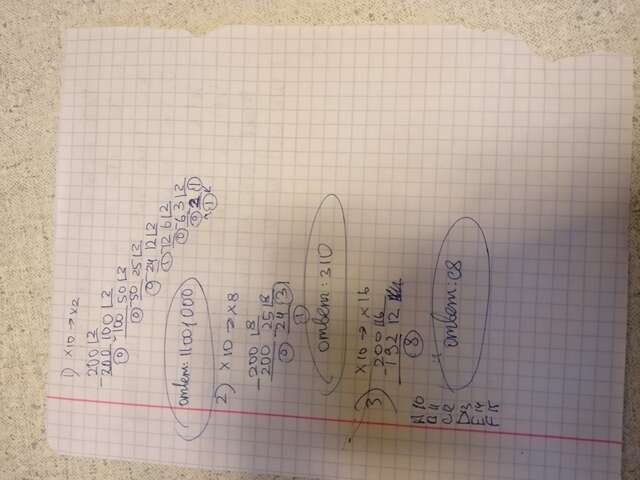 1) x10 → x2
200 | 2
- 200 100 | 2
0 - 100 50 | 2
0 - 50 25 | 2
0 - 24 12 | 2
1 - 12 6 | 2
0 - 6 3 | 2
0 2 1
1
ответ: 11001000
2) x10 → x8
- 200 | 8
200 25 | 8
0 - 24 3
1
ответ: 310
3) x10 → x16
- 200 | 16
192 12
8
A 10
B 11
C 12
D 13
E 14
F 15
ответ: C8